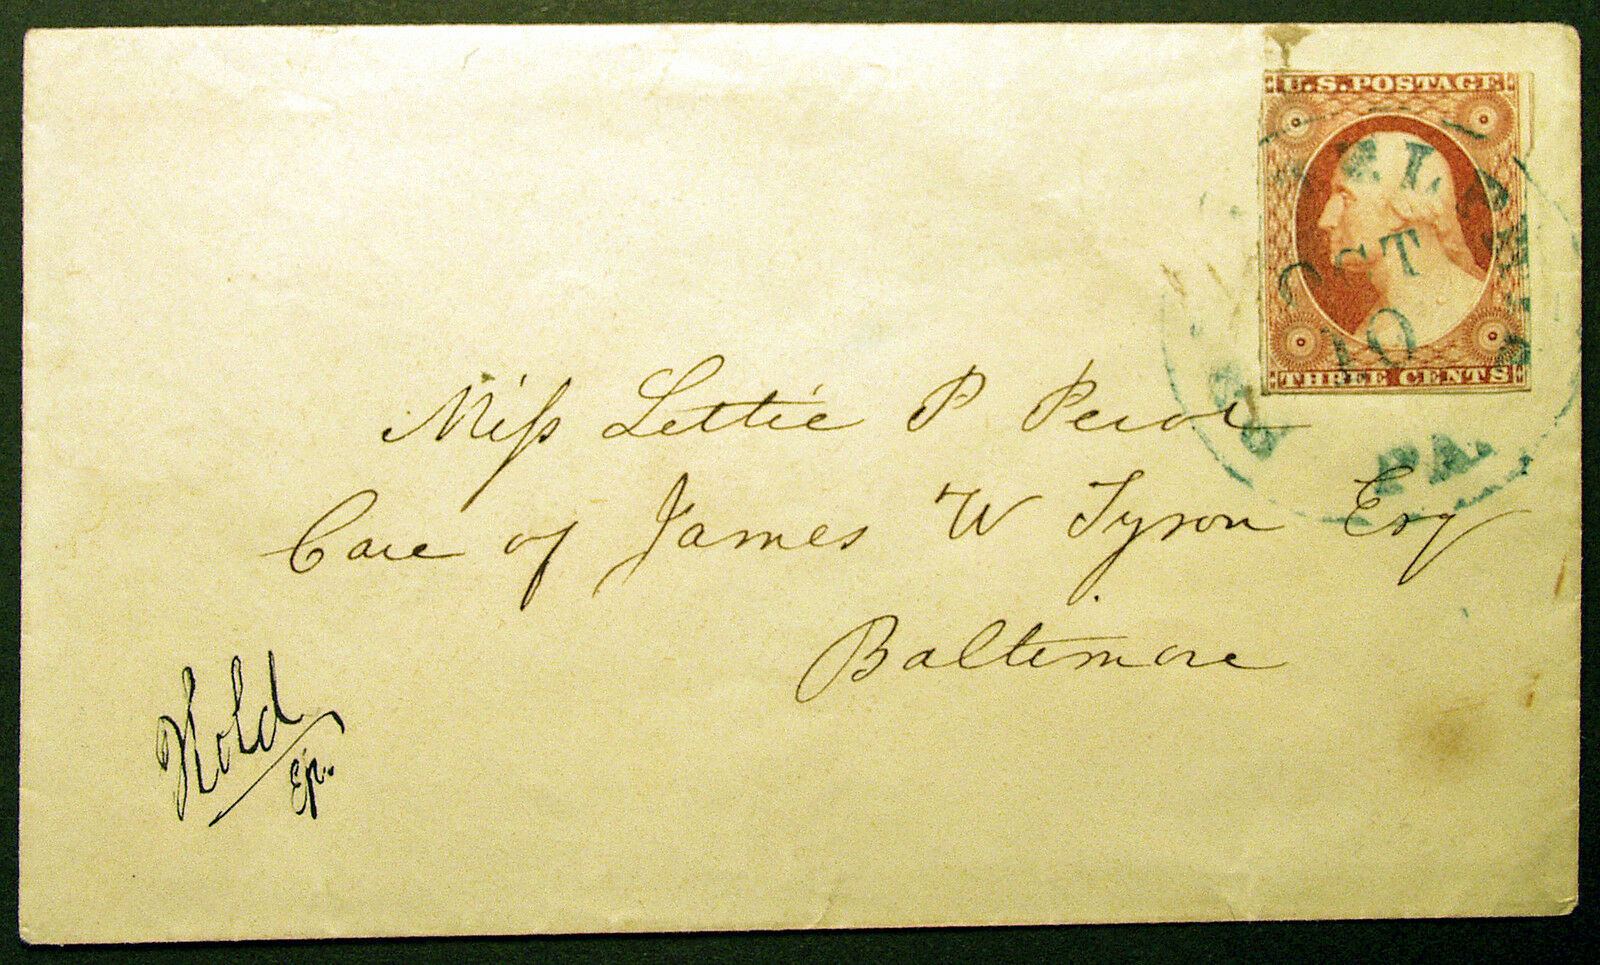 U.S. POSTAGE
OCT
10
PA.
THREE CENTS
Miss Lettie P
Care of James W Tyson Esq
Baltimore
Hold